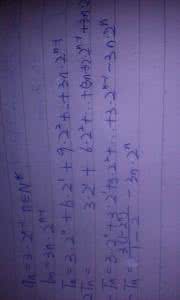 an=3·2^{n-1} n∈N*
bn=3n·2^{n-1}
Tn=3·2^0+6·2^1+9·2^2+…+3n·2^{n-1}
2Tn= 3·2^1+6·2^2+…+(3n-3)·2^{n-1}+3n·2^n
-Tn=3·2^0+3·2^1+3·2^2+…+3·2^{n-1}-3n·2^n
-Tn=\frac{3(1-2^n)}{1-2}-3n·2^n